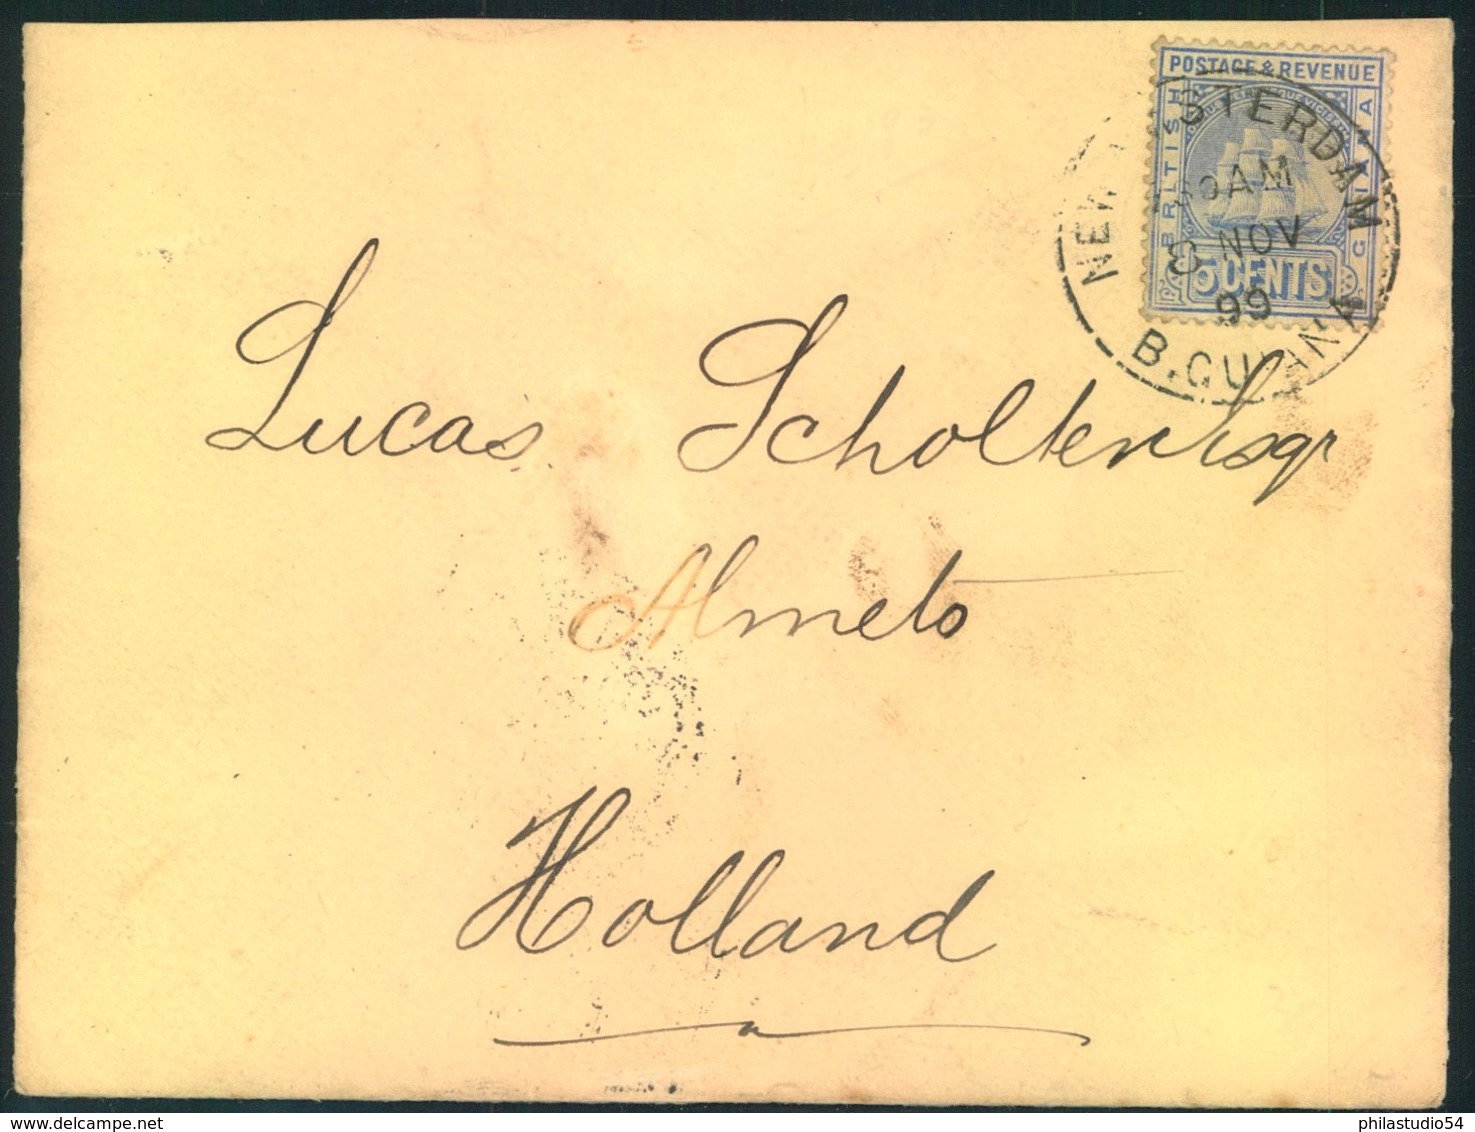 POSTAGE & REVENUE
BRITISH
GUIANA
5 CENTS
NEW AMSTERDAM
AM
8 NOV
99
B. GUIANA
Lucas Scholten Esqr
Almelo
Holland
philastudio54